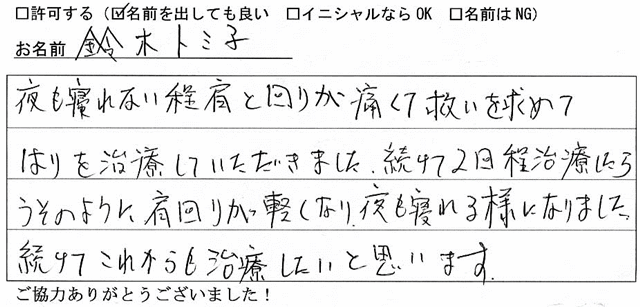 □許可する（☑名前を出しても良い　□イニシャルなら OK　□名前は NG）
お名前　鈴木トミ子
夜も寝れない程肩と回りが痛くて救いを求めて
はりを治療していただきました。続けて2回程治療したら
うそのように肩回りがっ軽くなり、夜も寝れる様になりました。
続けてこれからも治療したいと思います。
ご協力ありがとうございました！